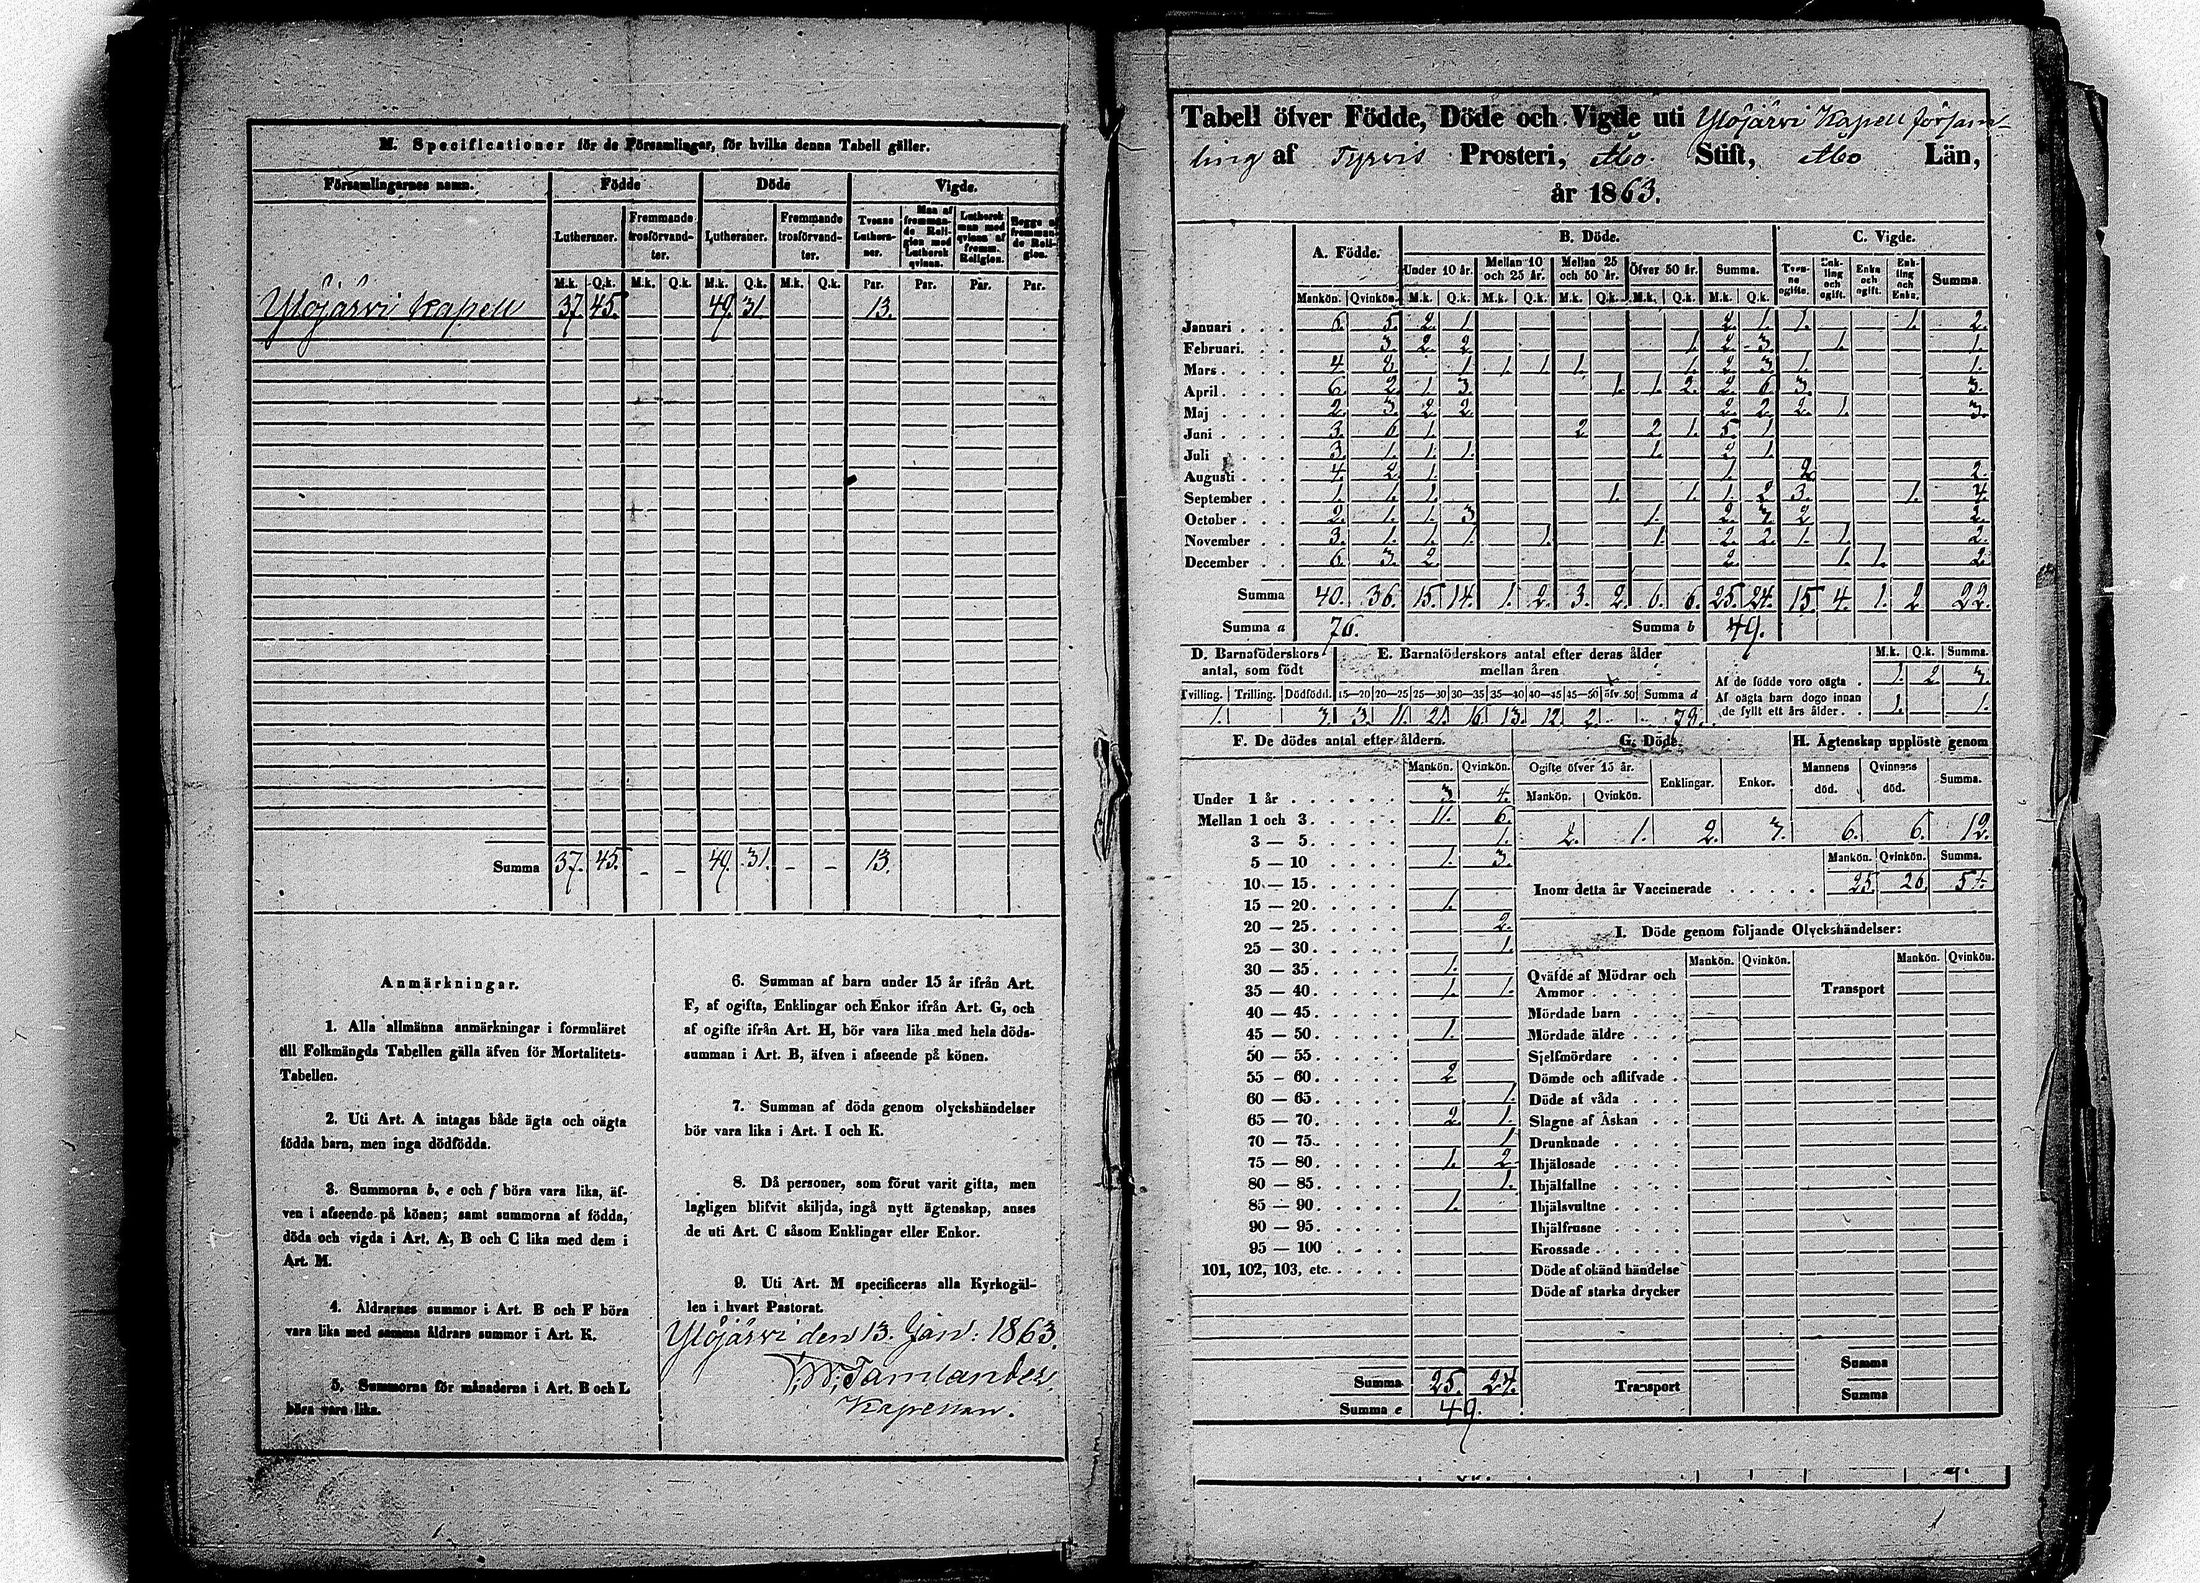 M. Specificationer för de Församlingar, för hvilka denna Tabell gäller.
Församlingarnes namn. Födde Döde Vigde.
Lutheraner. Fremmande trosförvandter. Lutheraner. Fremmande trosförvandter. Tvenne Lutheraner. Man af fremmande Religion med Luthersk qvinna. Luthersk man med qvinna af fremm. Religion. Begge af fremmande Religion.
M.k. Q.k. M.k. Q.k. M.k. Q.k. M.k. Q.k. Par. Par. Par. Par.
Ylöjärvi Kapell 37. 45. 49. 31. 13.
Summa 37. 45. - - 49. 31. - - 13.
Anmärkningar.
1. Alla allmänna anmärkningar i formuläret
till Folkmängds Tabellen gälla äfven för Mortalitets-
Tabellen.
2. Uti Art. A intagas både ägta och oägta
födda barn, men inga dödfödda.
3. Summorna b, e och f böra vara lika, äf-
ven i afseende på könen; samt summorna af födda,
döda och vigda i Art. A, B och C lika med dem i
Art. M.
4. Åldrarnes summor i Art. B och F böra
vara lika med samma åldrars summor i Art. K.
5. Summorna för månaderna i Art. B och L
böra vara lika.
6. Summan af barn under 15 år ifrån Art.
F, af ogifta, Enklingar och Enkor ifrån Art. G, och
af ogifte ifrån Art. H, bör vara lika med hela döds-
summan i Art. B, äfven i afseende på könen.
7. Summan af döda genom olyckshändelser
bör vara lika i Art. I och K.
8. Då personer, som förut varit gifta, men
lagligen blifvit skiljda, ingå nytt ägtenskap, anses
de uti Art. C såsom Enklingar eller Enkor.
9. Uti Art. M specificeras alla Kyrkogäl-
len i hvart Pastorat.
Ylöjärvi den 13. Jan: 1863.
Kapellan.
Tabell öfver Födde, Döde och Vigde uti Ylöjärvi Kapell försam-
ling af Tyrvis Prosteri, Åbo Stift, Åbo Län,
år 1863.
A. Födde. B. Döde. C. Vigde.
Under 10 år. Mellan 10 och 25 år. Mellan 25 och 50 år. Öfver 50 år. Summa. Tvenne ogifte. Enkling och ogift. Enka och ogift. Enkling och Enka. Summa.
Mankön. Qvinkön. M.k. Q.k. M.k. Q.k. M.k. Q.k. M.k. Q.k. M.k. Q.k.
Januari 6. 5. 2. 1. 2. 1. 1. 1. 2.
Februari. 3. 2. 2. 1. 2. 3. 1. 1.
Mars 4. 8. 1. 1. 1. 1. 1. 2. 3. 1. 1.
April 6. 2. 1. 3. 1. 1. 2. 2. 6. 3. 3.
Maj 2. 3. 2. 2. 2. 2. 2. 1. 3.
Juni 3. 6. 1. 2 2. 1. 5. 1.
Juli 3. 1. 1. 1. 1. 2. 1.
Augusti 4. 2. 1. 1. 2. 2.
September 1. 1. 1. 1. 1. 1. 2. 3. 1. 4.
October 2. 1. 1. 3. 1. 2. 3. 2. 2.
November 3. 1. 1. 1. 1. 1. 2. 2. 1. 1. 2.
December 6. 3. 2. 2. 1. 1. 2.
Summa 40. 36. 15. 14. 1. 2. 3. 2. 6. 6. 25. 24. 15. 4. 1. 2 22.
Summa a 76. Summa b 49.
D. Barnaföderskors antal, som födt
Tvilling. Trilling. Dödfödd.
1. 3.
E. Barnaföderskors antal efter deras ålder mellan åren
15—20 20—25 25—30 30—35 35—40 40—45 45—50 öfv. 50 Summa d
3. 11. 21. 16. 13. 12. 2. 78.
M.k. Q.k. Summa.
Af de födde voro oägta 1. 2. 3.
Af oägta barn dogo innan
de fyllt ett års ålder 1. 1.
F. De dödes antal efter åldern.
Mankön. Qvinkön.
Under 1 år 3. 4.
Mellan 1 och 3 11. 6.
3 — 5. 1.
5 — 10 1. 3.
10 — 15.
15 — 20. 1.
20 — 25. 2.
25 — 30. 1.
30 — 35. 1.
35 — 40. 1. 1.
40 — 45.
45 — 50. 1.
50 — 55.
55 — 60. 2
60 — 65. 1.
65 — 70. 2. 1.
70 — 75. 1
75 — 80. 1. 2
80 — 85. 1.
85 — 90. 1.
90 — 95.
95 — 100
101, 102, 103, etc.
Summa 25. 24.
Summa e 49.
G. Döde.
Ogifte öfver 15 år. Enklingar. Enkor.
Mankön. Qvinkön.
2. 1. 2. 7.
H. Ägtenskap upplöste genom
Mannens död. Qvinnans död. Summa.
6. 6. 12.
Mankön. Qvinkön. Summa.
Inom detta år Vaccinerade 25. 26. 51.
I. Döde genom följande Olyckshändelser:
Mankön. Qvinkön. Mankön. Qvinkön.
Qväfde af Mödrar och
Ammor Transport
Mördade barn
Mördade äldre
Sjelfmördare
Dömde och aflifvade
Döde af våda
Slagne af Åskan
Drunknade
Ihjälosade
Ihjälfallne
Ihjälsvultne
Ihjälfrusne
Krossade
Döde af okänd händelse
Döde af starka drycker
Summa
Transport Summa